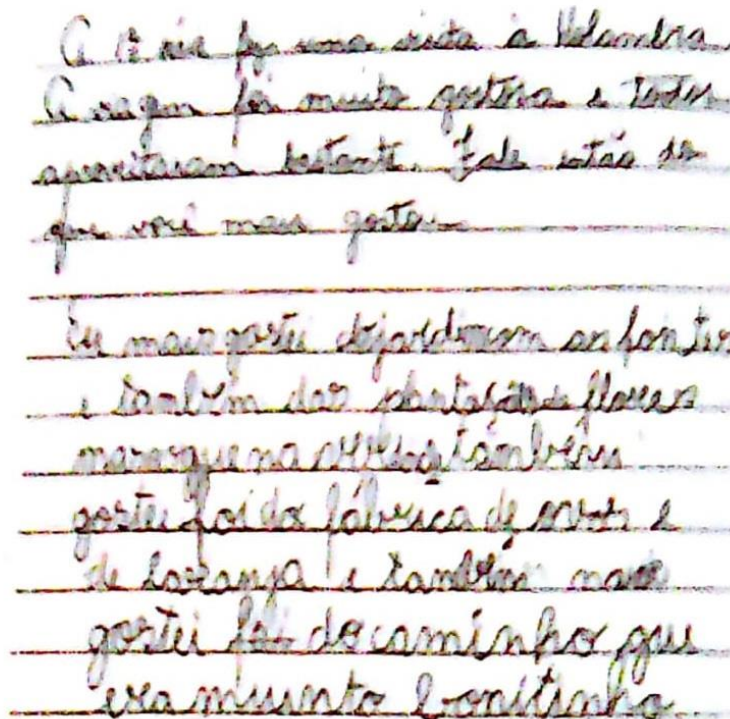 A 1ª série fez uma visita à Holambra.
A viagem foi muito gostosa e todos
aproveitaram bastante. Fale então do
que você mais gostou.
Eu mais gostei do jardim com as fontes
e também das plantações de flores
mas o que na também
gostei foi da fábrica de e
de laranja e também mais
gostei foi do caminho que
era muinto bonitinho